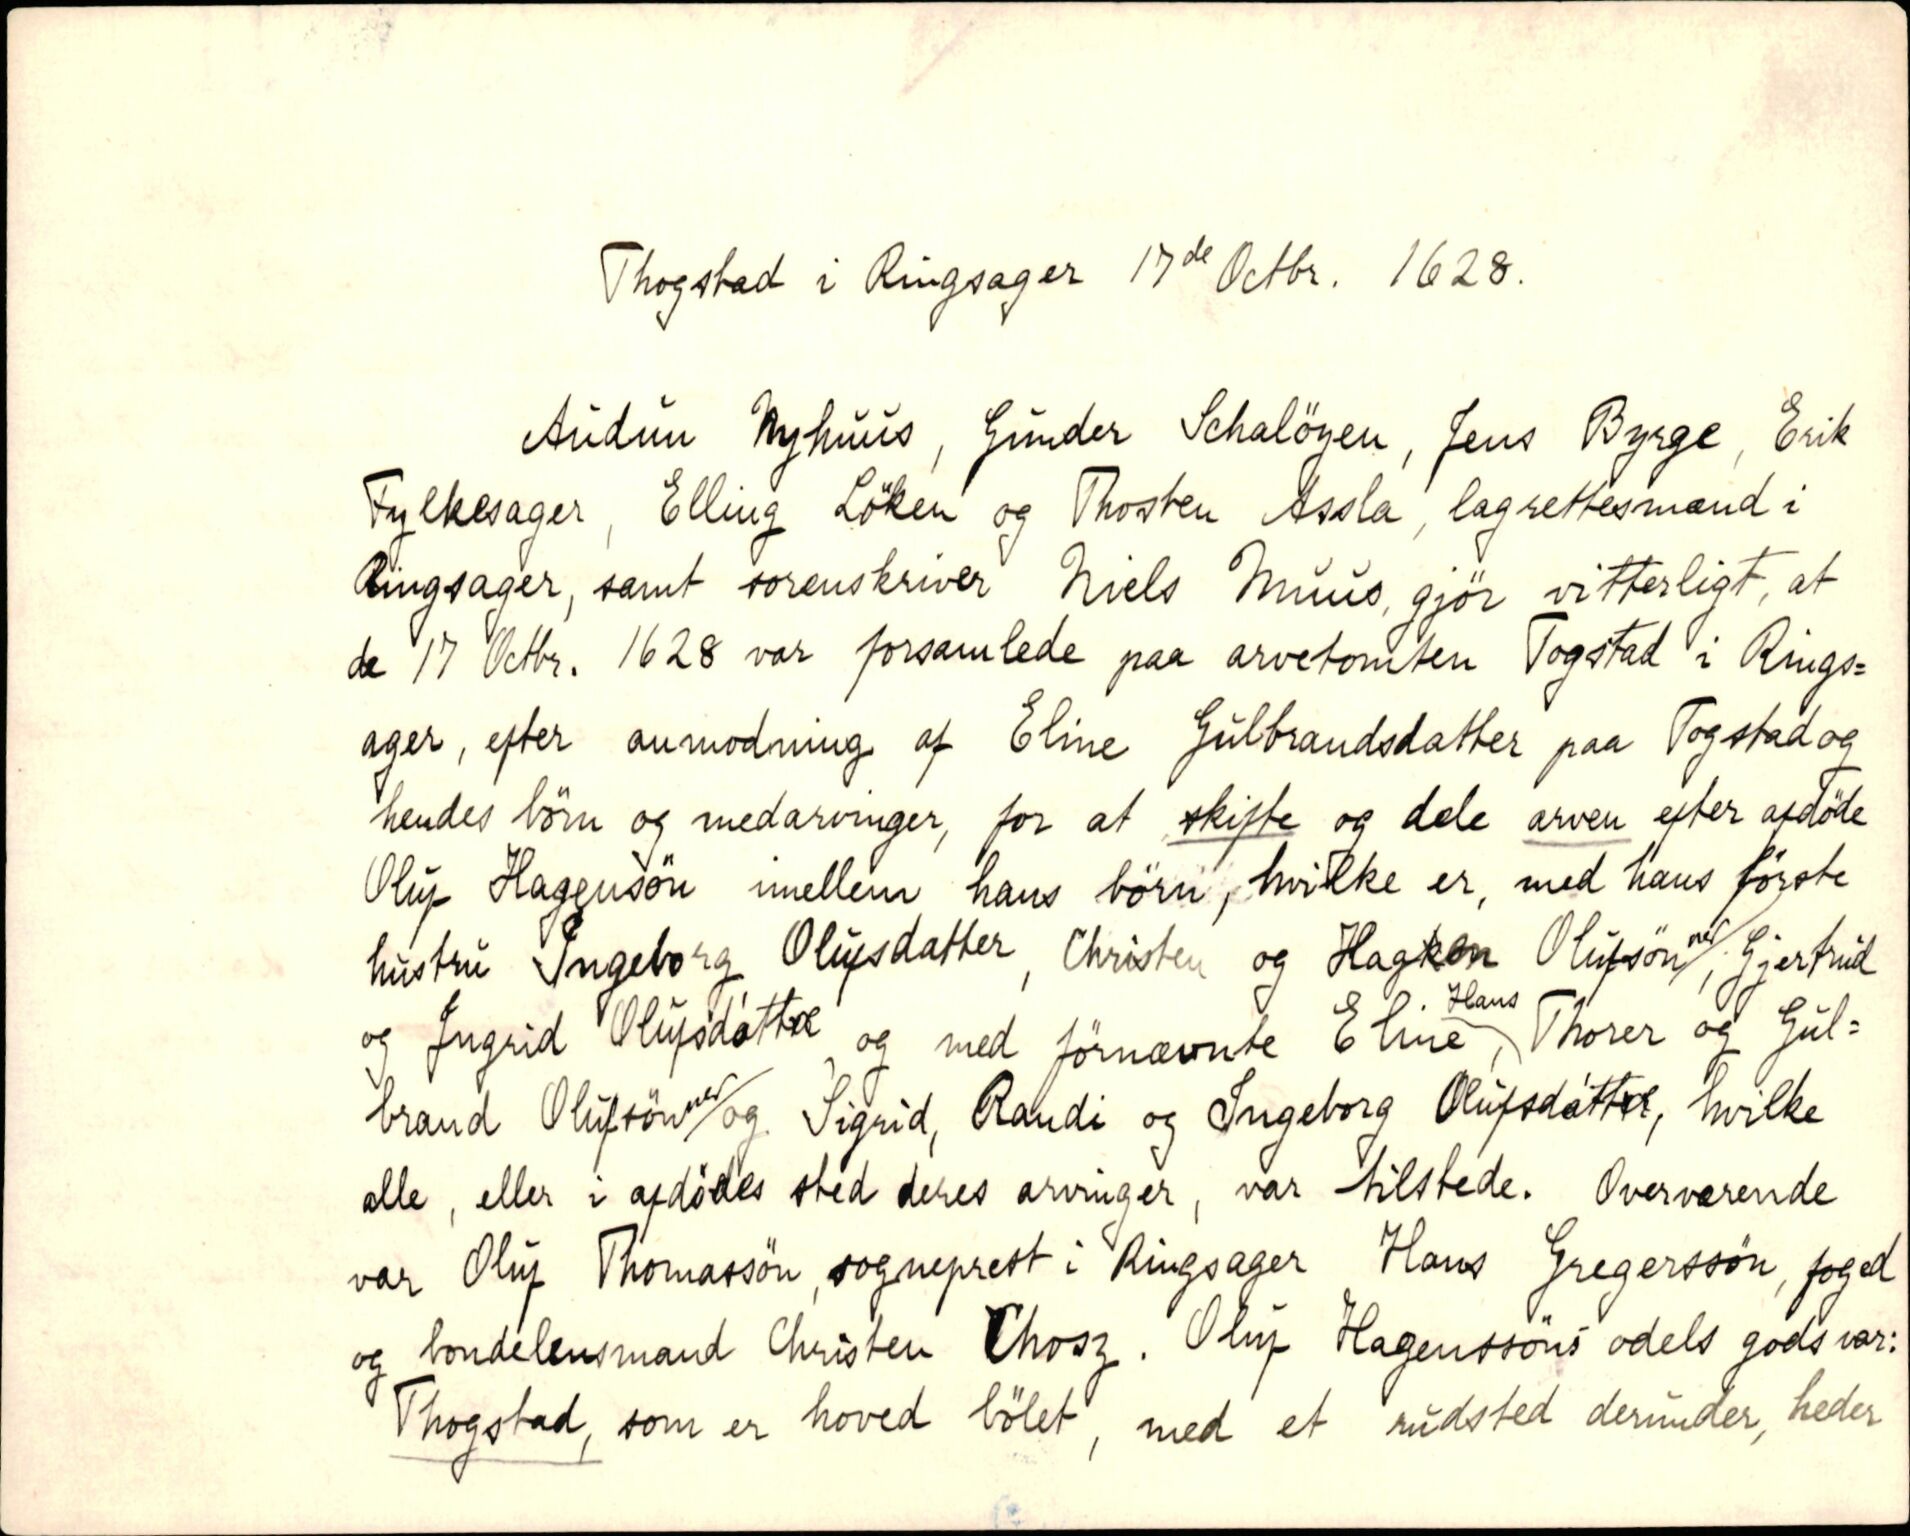 Thogstad i Ringsager 17de Octbr. 1628.
Audun Nyhuus, Gunder Schalöyen, Jens Byrge, Erik
Fylkesager, Elling Löken og Thosten Assla, lagrettesmænd i
Ringsager, samt sorenskriver Niels Muus, gjör vitterligt, at
de 17 Octbr. 1628 var forsamlede paa arvetomten Togstad i Rings=
ager, efter anmodning af Eline Gulbrandsdatter paa Togstad og
hendes börn og medarvinger, for at skifte og dele arven efter afdöde
Oluf Hagensön imellem hans börn, hvilke er, med hans förste
hustru Ingeborg Olufsdatter, Christen og Hagken Olufsönner, Gjertrud
og Ingrid Olufsdøttre og med förnævnte Eline, Hans Thorer og Gul=
brand Olufsönner og Sigrid, Randi og Ingeborg Olufsdøttre, hvilke
alle, eller i afdödes sted deres arvinger, var tilstede. Overværende
var Oluf Thomassön, sogneprest i Ringsager Hans Gregerssön, foged
og bondelensmand Christen Thosz. Oluf Hagenssöns odels gods var:
Thogstad, som er hoved bölet, med et rudsted derunder, heder